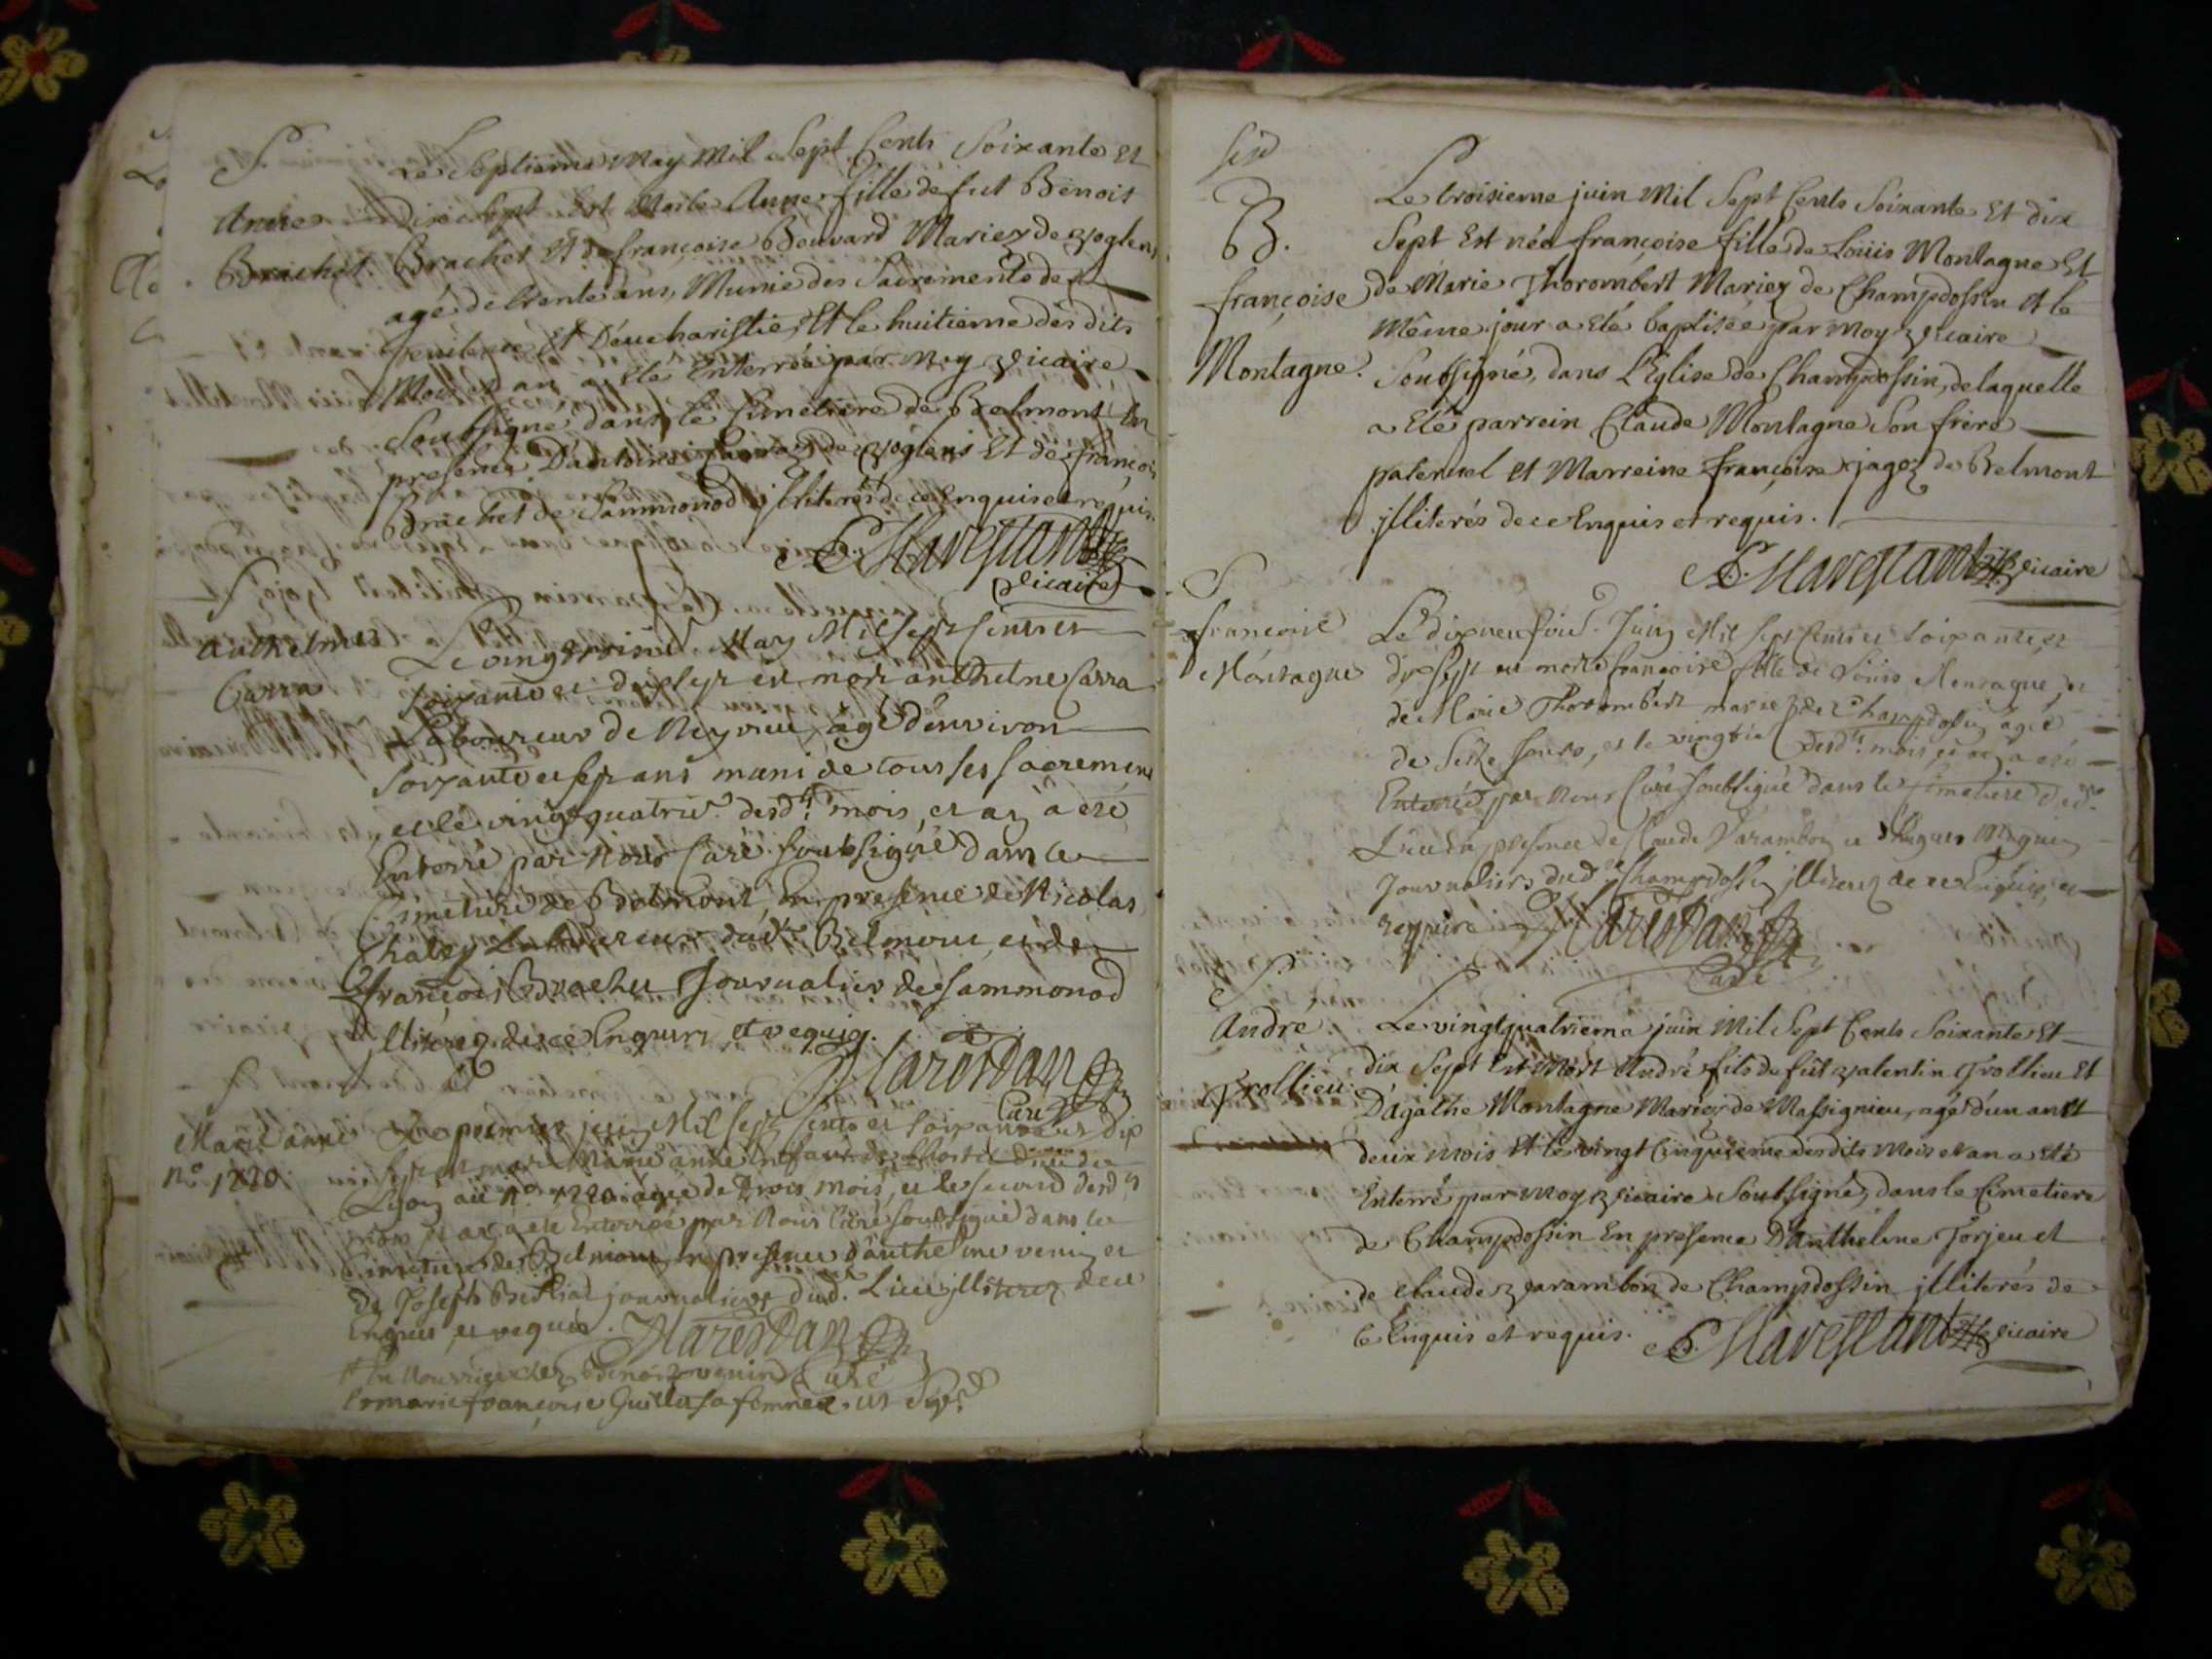 S.
Anne
Brachet.
Le Septieme May Mil Sept Cents Soixante Et
Dix Sept Est Morte Anne fille de fut Benoit
Brachet Et de françoise Bouvard Mariez de Voglens
agé de trente ans, Munie des Sacrements de
penitence Et D'eucharistie, Et le huitieme des dits
Mois et an a Eté Enterrée par Moy Vicaire
Soubsigné dans le Cimetiere de Belmont, En
presence D'antoine de Voglens Et de françois
Brachet de Sammonod jlliterés de ce Enquis et requis.
Marestant
Vicaire
S
Anthelme
Carra
Le vingt troisie. May Mil sept Cents et
soixante et dix sept est mort anthelme Carra
Laboureur de Neyrieu, agé d'environ
soixante et sept ans muni de tous ses sacrements
et le vingt quatrie. desdts. mois, et an a eté
Enterré par Nous Curé soubsigné dans le
Cimetiere de Belmont, En presence de Nicolas
Chaley Laboureur dudt. Belmont, et de
françois Brachet Journalier de Sammonod
jlliterez de ce Enquis et requis.
Marestan
Curé
S
Marie anne
No. 1220.
Le premier juin Mil sept Cents et soixante et dix
sept est morte Marie anne Enfant de l'hotel dieu de
Lyon au No. 1220 agée de trois mois, et le second desdts
mois et an a eté Enterrée par Nous Curé soubsigné dans le
Cimetiere de Belmont en presence d'anthelme venin et
de Joseph journaliers dud. Lieu jlliterez de ce
Enquis et requis. Marestan
En Nourrice chez Benoit venin Curé
et marie françoise Guillet sa femme
B.
françoise
Montagne.
Le troisieme juin Mil Sept Cents Soixante Et dix
Sept Est née françoise fille de Loüis Montagne Et
de Marie Thorombert Mariez de Champdossin Et le
Même jour a Eté baptisée par Moy Vicaire
Soubsigné, dans L'Eglise de Champdossin, de laquelle
a Eté parrein Claude Montagne Son frère
paternel Et Marreine françoise jagoz de Belmont
jlliterés de ce Enquis et requis.
Marestant Vicaire
S
francoise
Montagne
Le Dixneufvie. Juin Mil sept Cents et soixante et
dix sept est morte françoise fille de Loüis Montagne, et
de Marie Thorombert mariez de Champdossin agée
de Seize jours, et le vingtie. desdts. mois, et an a eté
Enterrée par Nous Curé soubsigné dans le Cimetiere dudt.
Lieu En presence de Claude Varambon et Hugues
Journaliers dudt. Champdossin jlliterez de ce Enquis, et
requis Marestan
Curé
S.
André
Trollieu
Le vingt quatrieme juin Mil Sept Cents Soixante Et
dix Sept Est Mort André fils de fût Valentin Trollieu Et
D'agathe Montagne Mariez de Massignieu, agé d'un an Et
deux mois Et le vingt Cinquieme des dits Mois et an a Eté
Enterré par Moy Vicaire Soubsigné, dans le Cimetiere
de Champdossin En présence D'Anthelme Torjeu et
de Claude Varambon de Champdossin jlliterés de
Ce Enquis et requis. Marestant Vicaire